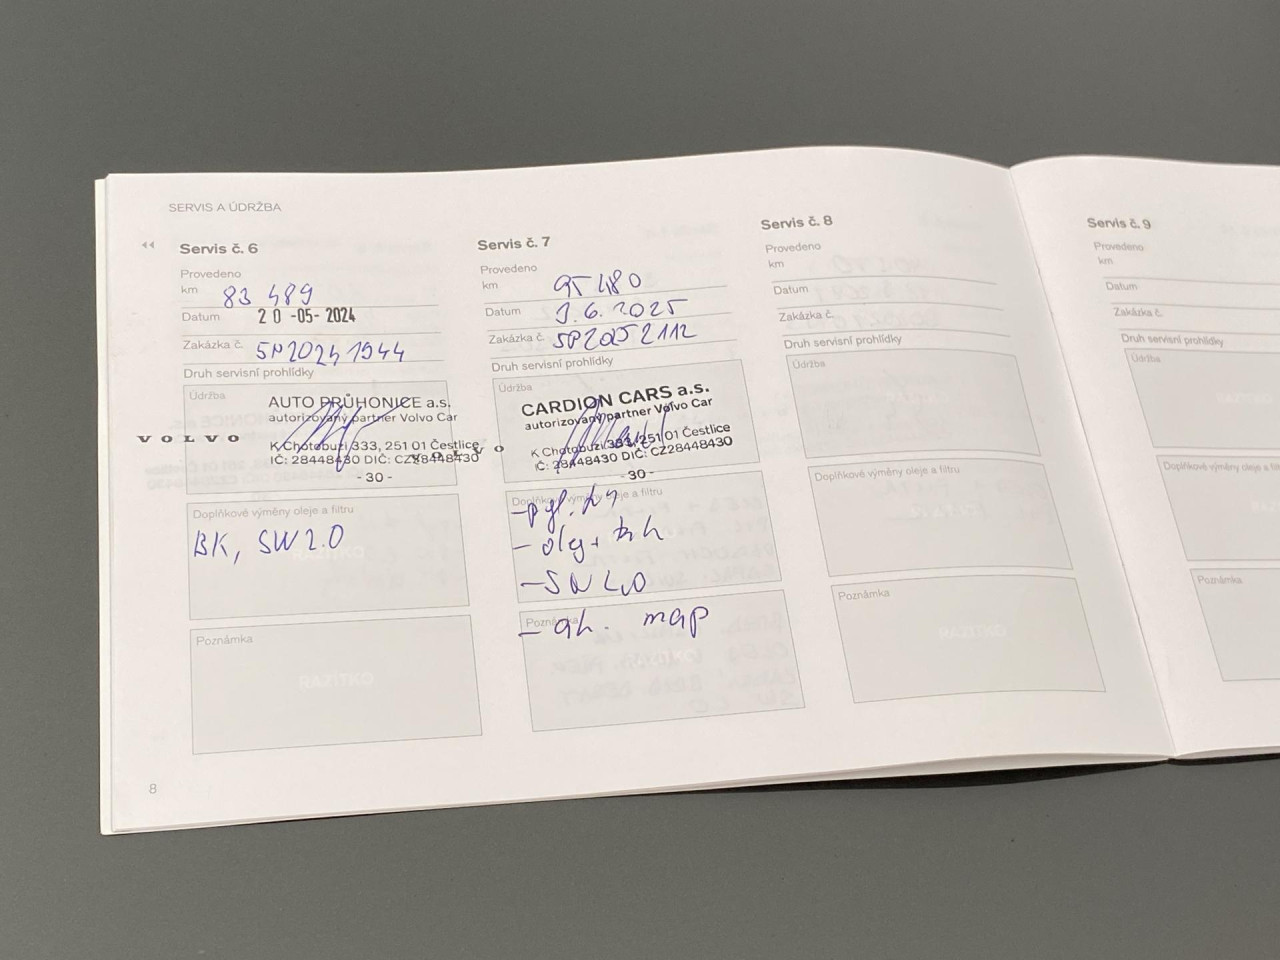 SERVIS A ÚDRŽBA
Servis č. 6
Provedeno
km 83 489
Datum 20-05-2024
Zakázka č. SN20241944
Druh servisní prohlídky
Údržba
AUTO PRŮHONICE a.s.
autorizovaný partner Volvo Car
VOLVO
K Chotobuzi 333, 251 01 Čestlice
IČ: 28448430 DIČ: CZ28448430
- 30 -
Doplňkové výměny oleje a filtru
BK, SW 2.0
Poznámka
RAZÍTKO
8
Servis č. 7
Provedeno
km 95 480
Datum 9.6.2025
Zakázka č. SP20252112
Druh servisní prohlídky
Údržba
CARDION CARS a.s.
autorizovaný partner Volvo Car
VOLVO
K Chotobuzi 333, 251 01 Čestlice
IČ: 28448430 DIČ: CZ28448430
- 30 -
Doplňkové výměny oleje a filtru
Poznámka
- ah. map
Servis č. 8
Provedeno
km
Datum
Zakázka č.
Druh servisní prohlídky
Údržba
Doplňkové výměny oleje a filtru
Poznámka
RAZÍTKO
Servis č. 9
Provedeno
km
Datum
Zakázka č.
Druh servisní prohlídky
Údržba
Doplňkové výměny oleje a
Poznámka